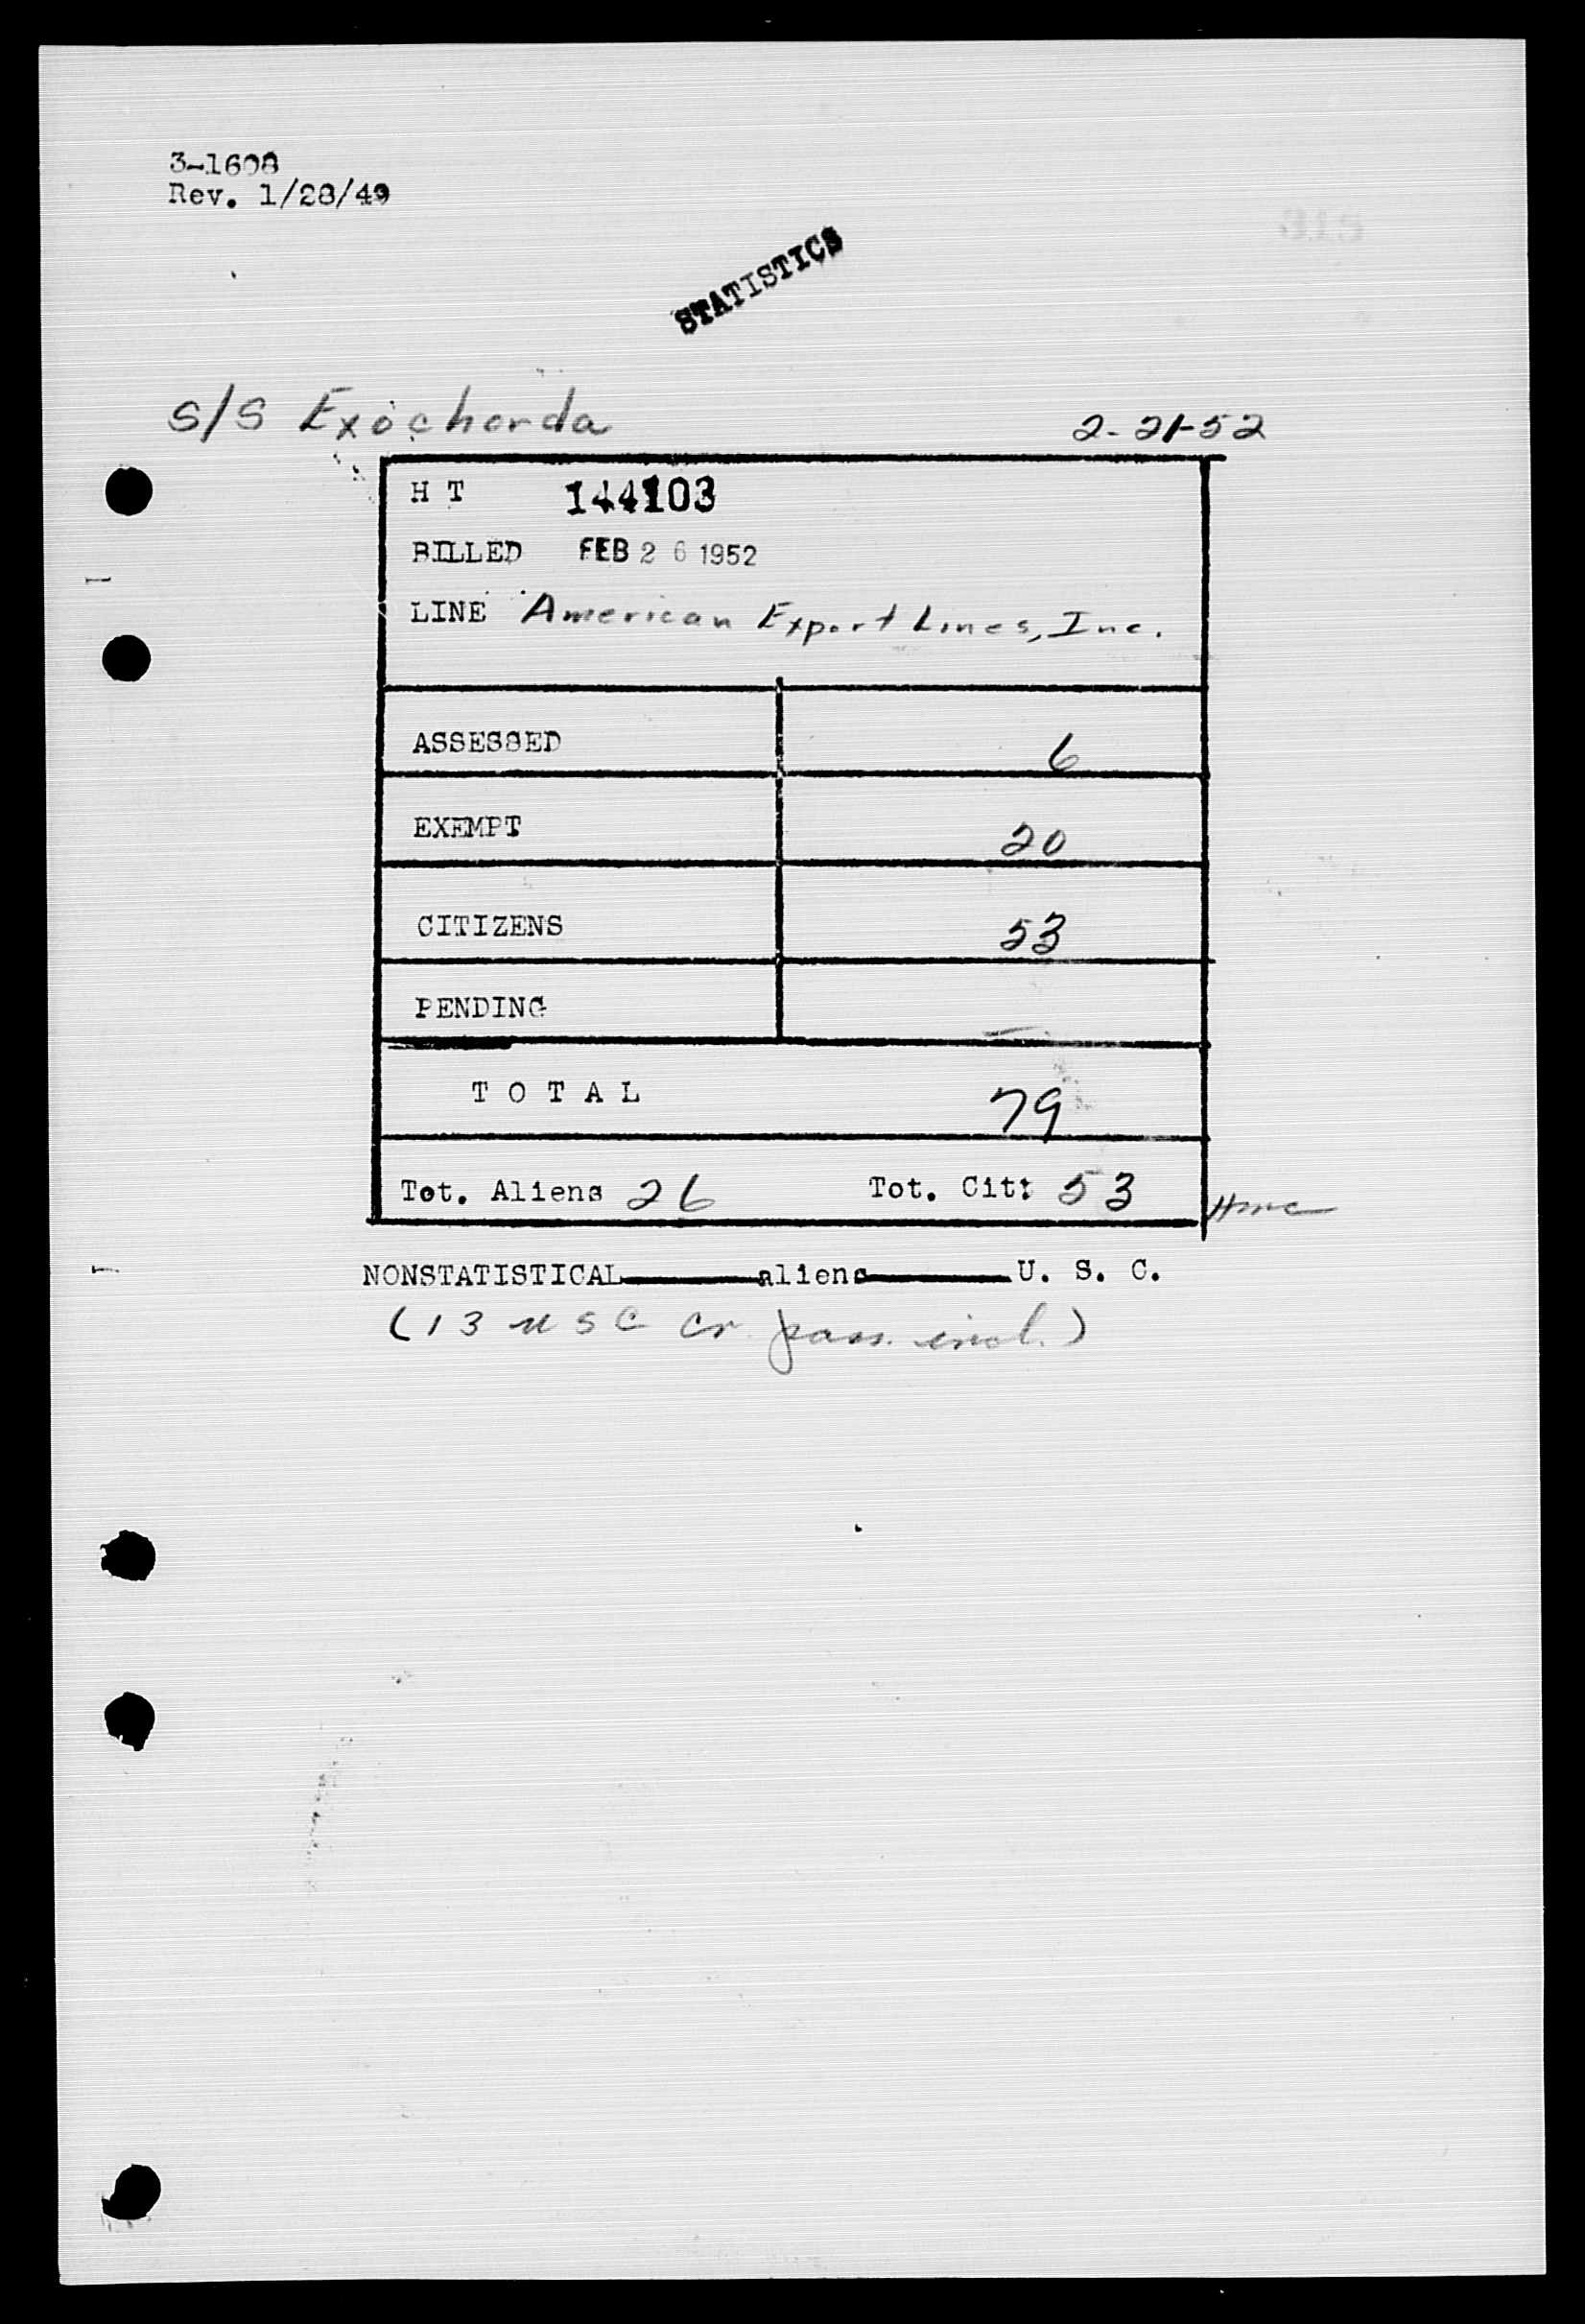 3-1608
Rev. 1/28/49
STATISTICS
S/S Exochorda 2-21-52
H T 144103
BILLED FEB 26 1952
LINE American Export Lines, Inc.
ASSESSED 6
EXEMPT 20
CITIZENS 53
PENDING
T O T A L 79
Tot. Aliens 26 Tot. Cit: 53
NONSTATISTICAL aliens U. S. C.
(13 USC Cr pass. incl.)